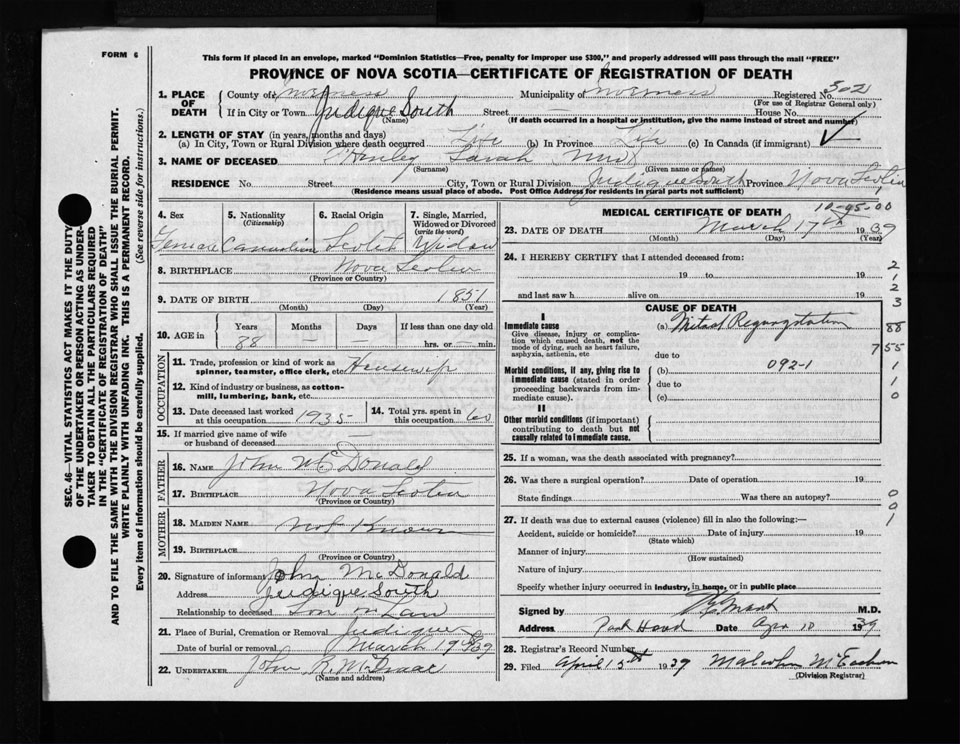 FORM 6
This form if placed in an envelope, marked "Dominion Statistics—Free, penalty for improper use $300," and properly addressed will pass through the mail "FREE"
PROVINCE OF NOVA SCOTIA—CERTIFICATE OF REGISTRATION OF DEATH
1. PLACE OF DEATH
County of Inverness Municipality of Inverness Registered No. 302
(For use of Registrar General only)
If in City or Town Judique South Street House No.
(Name) (If death occurred in a hospital or institution, give the name instead of street and number)
2. LENGTH OF STAY (in years, months and days)
(a) In City, Town or Rural Division where death occurred Life (b) In Province Life (c) In Canada (if immigrant)
3. NAME OF DECEASED Sarah (Mrs)
(Surname) (Given name or names)
RESIDENCE No. Street City, Town or Rural Division Judique South Province Nova Scotia
(Residence means usual place of abode. Post Office Address for residents in rural parts not sufficient)
SEC. 46—VITAL STATISTICS ACT MAKES IT THE DUTY OF THE UNDERTAKER OR PERSON ACTING AS UNDERTAKER TO OBTAIN ALL THE PARTICULARS REQUIRED IN THE "CERTIFICATE OF REGISTRATION OF DEATH" AND TO FILE THE SAME WITH THE DIVISION REGISTRAR WHO SHALL ISSUE THE BURIAL PERMIT.
WRITE PLAINLY WITH UNFADING INK. THIS IS A PERMANENT RECORD.
Every item of information should be carefully supplied. (See reverse side for instructions.)
4. Sex 5. Nationality (Citizenship) 6. Racial Origin 7. Single, Married, Widowed or Divorced (write the word)
Female Canadian Scotch Widow
8. BIRTHPLACE Nova Scotia
(Province or Country)
9. DATE OF BIRTH 1851
(Month) (Day) (Year)
10. AGE in Years Months Days If less than one day old
88 — — hrs. or — min.
OCCUPATION
11. Trade, profession or kind of work as spinner, teamster, office clerk, etc. Housewife
12. Kind of industry or business, as cotton-mill, lumbering, bank, etc.
13. Date deceased last worked at this occupation 1935 14. Total yrs. spent in this occupation 60
15. If married give name of wife or husband of deceased
FATHER
16. NAME John McDonald
17. BIRTHPLACE Nova Scotia
(Province or Country)
MOTHER
18. MAIDEN NAME Not Known
19. BIRTHPLACE
(Province or Country)
20. Signature of informant John McDonald
Address Judique South
Relationship to deceased Son in Law
21. Place of Burial, Cremation or Removal Judique
Date of burial or removal March 19 1939
22. UNDERTAKER John R. McIsaac
(Name and address)
MEDICAL CERTIFICATE OF DEATH
10-95-00
23. DATE OF DEATH March 17th 1939
(Month) (Day) (Year)
24. I HEREBY CERTIFY that I attended deceased from:
19 to 19
and last saw h alive on 19
2
1
2
3
CAUSE OF DEATH
I
Immediate cause (a) Mitral Regurgitation
Give disease, injury or complication which caused death, not the mode of dying, such as heart failure, asphyxia, asthenia, etc
due to
88
7 55
Morbid conditions, if any, giving rise to immediate cause (stated in order proceeding backwards from immediate cause).
(b) 092-1
due to
(c)
1
1
0
II
Other morbid conditions (if important) contributing to death but not causally related to immediate cause.
25. If a woman, was the death associated with pregnancy?
26. Was there a surgical operation? Date of operation 19
State findings Was there an autopsy?
0
0
1
27. If death was due to external causes (violence) fill in also the following:—
Accident, suicide or homicide? Date of injury 19
(State which)
Manner of injury
(How sustained)
Nature of injury
Specify whether injury occurred in industry, in home, or in public place
Signed by M.D.
Address Port Hood Date Apr 10 1939
28. Registrar's Record Number
29. Filed April 15th 1939 Malcolm McEachern
(Division Registrar)